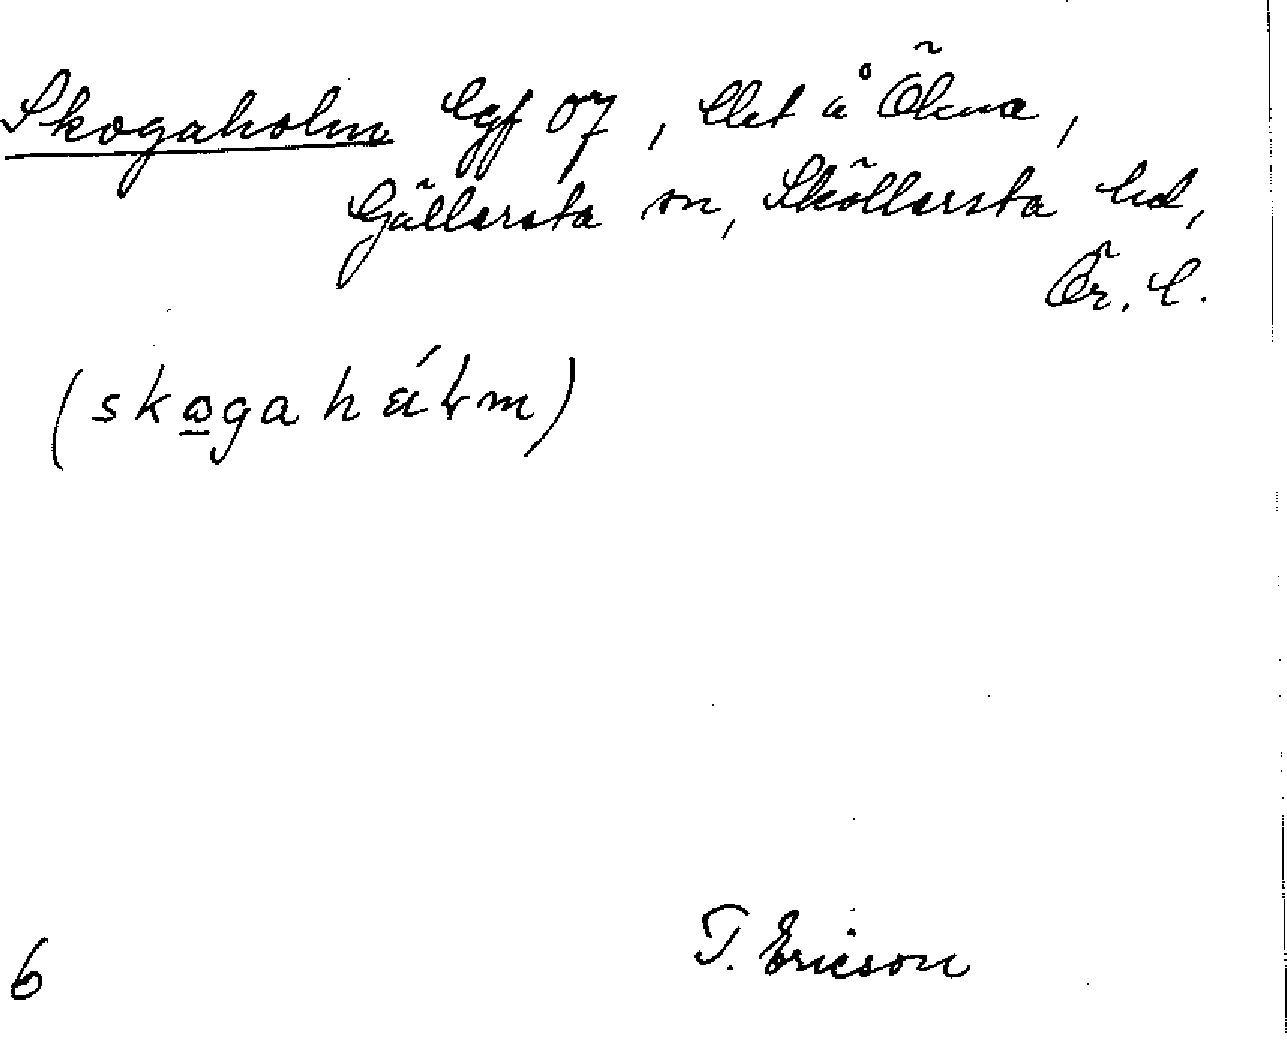 Skogaholm lgf 07, lht å Älvna,
Gällersta sn, Sköllersta hd,
Ör. l.
(skogahálm)
6 T. Ericson